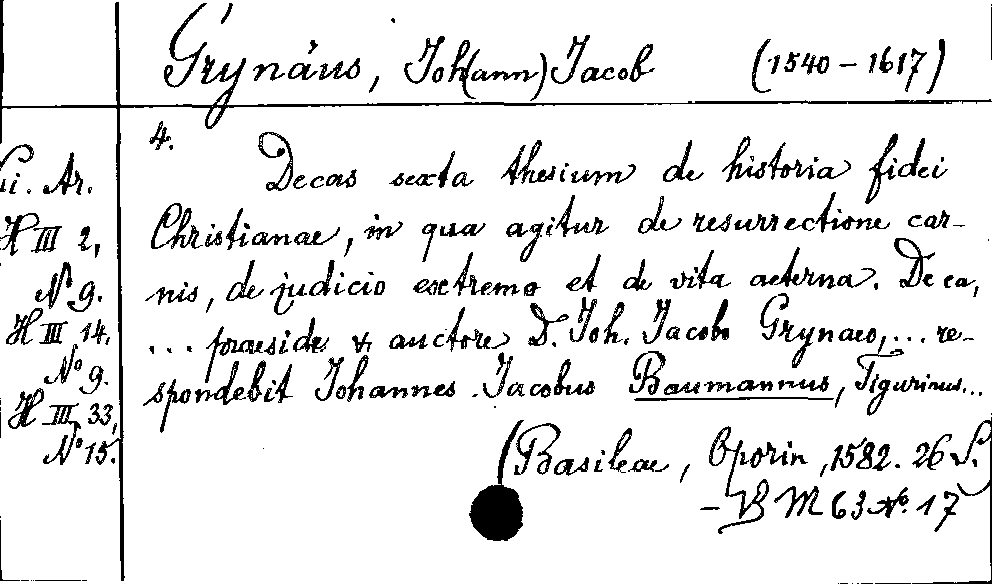 Grynäus, Joh(ann) Jacob (1540-1617)
4.
Decas sexta thesium de historia fidei
Christianae, in qua agitur de resurrectione car-
nis, de judicio extremo et de vita aeterna. De ea,
... praeside & auctore D. Joh. Jacobo Grynaeo,... re-
spondebit Johannes Jacobus Baumannus, Tigurinus...
(Basileae, Oporin, 1582. 26 S.)
- B M 63 No. 17
Ar.
H III 2,
No 9.
H III 14,
No 9.
H III 33,
No 15.